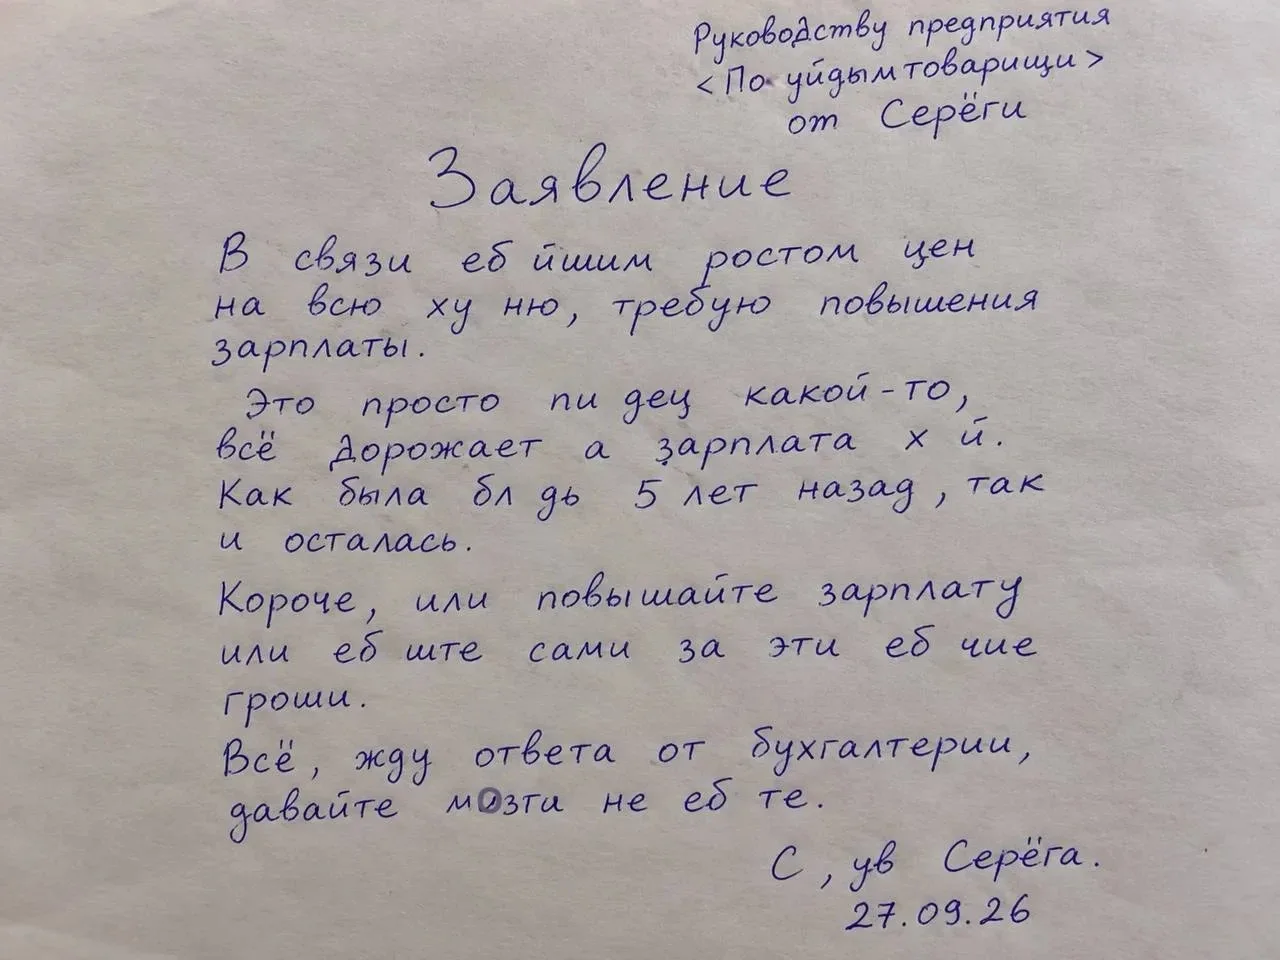 Руководству предприятия
<По уйдымтоварищи>
от Серёги
Заявление
В связи еб йшим ростом цен
на всю ху ню, требую повышения
зарплаты.
Это просто пи дец какой-то,
всё дорожает а зарплата х й.
Как была бл дь 5 лет назад, так
и осталась.
Короче, или повышайте зарплату
или еб ште сами за эти еб чие
гроши.
Всё, жду ответа от бухгалтерии,
давайте мозги не еб те.
С, ув Серёга.
27.09.26